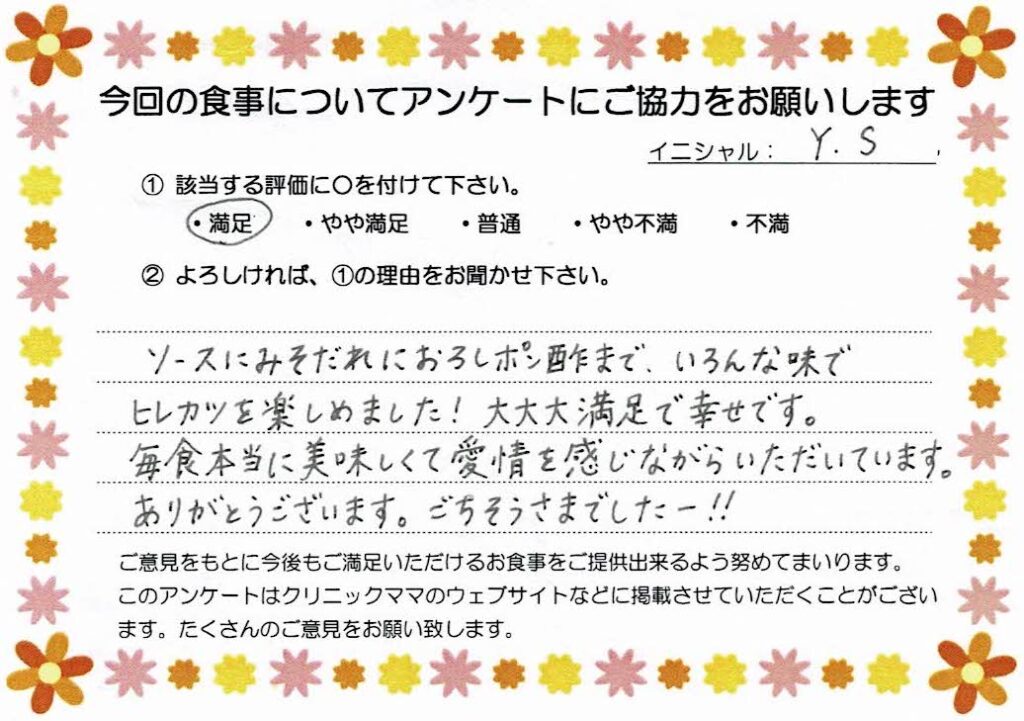 今回の食事についてアンケートにご協力をお願いします
イニシャル： Y. S
① 該当する評価に〇を付けて下さい。
・満足 ・やや満足 ・普通 ・やや不満 ・不満
② よろしければ、①の理由をお聞かせ下さい。
ソースにみそだれにおろしポン酢まで、いろんな味で
ヒレカツを楽しめました！大大大満足で幸せです。
毎食本当に美味しくて愛情を感じながらいただいています。
ありがとうございます。ごちそうさまでしたー！！
ご意見をもとに今後もご満足いただけるお食事をご提供出来るよう努めてまいります。
このアンケートはクリニックママのウェブサイトなどに掲載させていただくことがござい
ます。たくさんのご意見をお願い致します。